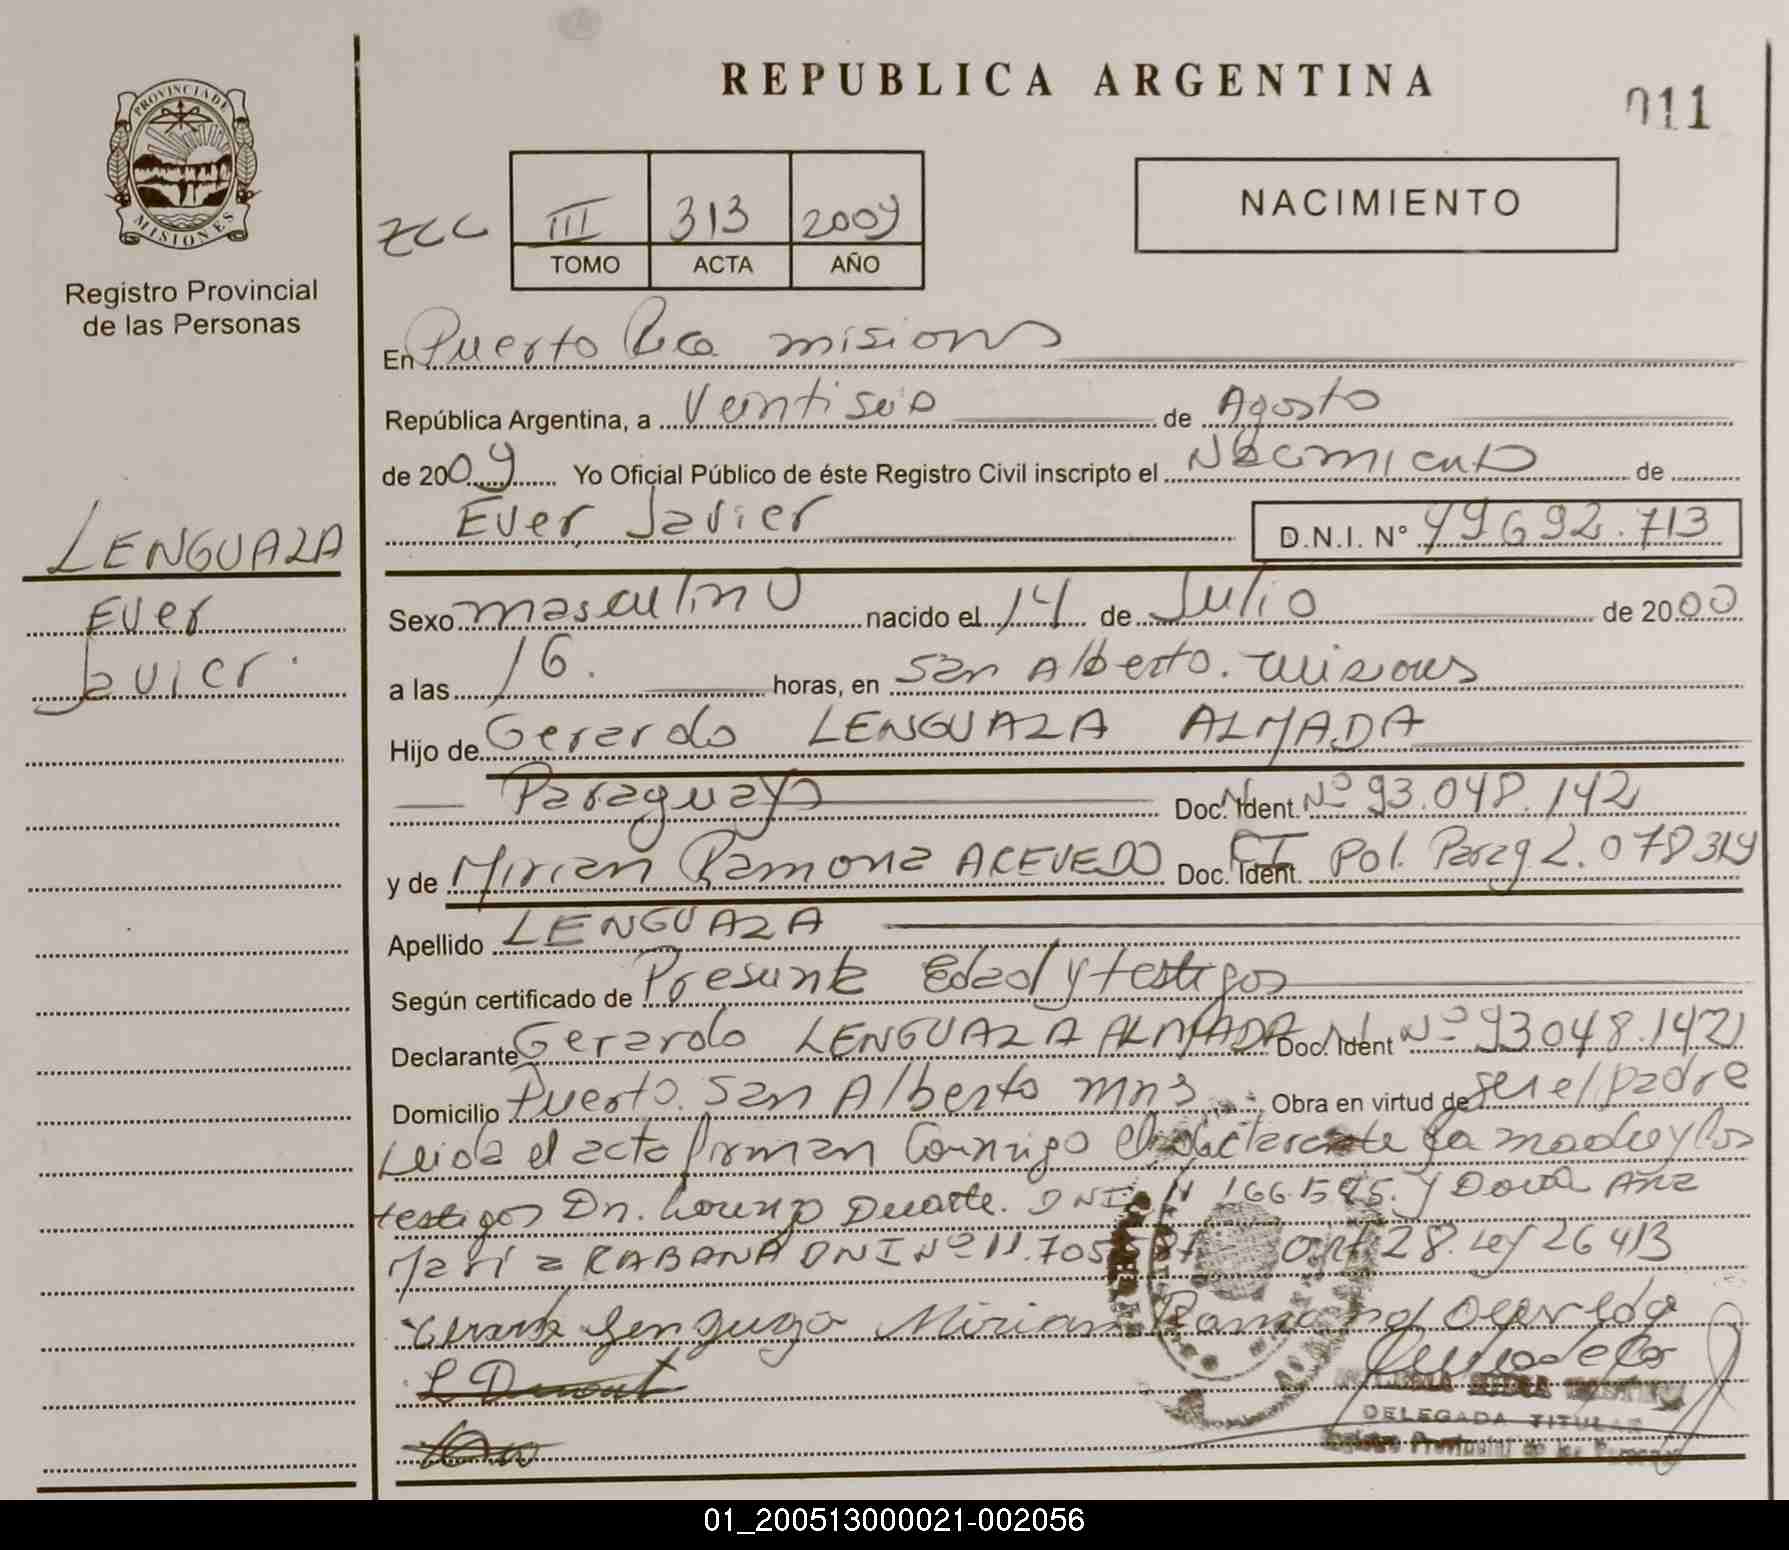 REPUBLICA ARGENTINA
011
PROVINCIA DE
MISIONES
Registro Provincial
de las Personas
NACIMIENTO
III 313 2009
TOMO ACTA AÑO
En Puerto Rico misiones
República Argentina, a Veintiseis de Agosto
de 2009 Yo Oficial Público de éste Registro Civil inscripto el Nacimiento de
Ever Javier D.N.I. Nº 49692.713
LENGUAZA
Ever
Javier.
Sexo masculino nacido el 14 de Julio de 2000
a las 16. horas, en San Alberto. misiones
Hijo de Gerardo LENGUAZA ALMADA
Paraguayo Doc. Ident. Nº 93.048.142
y de Mirian Ramona ACEVEDO Doc. Ident. CI Pol. Parag 2.078319
Apellido LENGUAZA
Según certificado de Presunta Edad y testigos
Declarante Gerardo LENGUAZA ALMADA Doc. Ident Nº 93048.142
Domicilio Puerto San Alberto Mns Obra en virtud de ser el padre
Leida el acta firman conmigo el declarante la madre y los
testigos Dn. Lorenzo Duarte. DNI y Doña Ana
Maria RABANA DNI Nº 11.705 art 28. Ley 26413
Lenguaza Mirian Ramona Acevedo
L Duart
DELEGADA TITULAR
Registro Provincial de las Personas
01_200513000021-002056